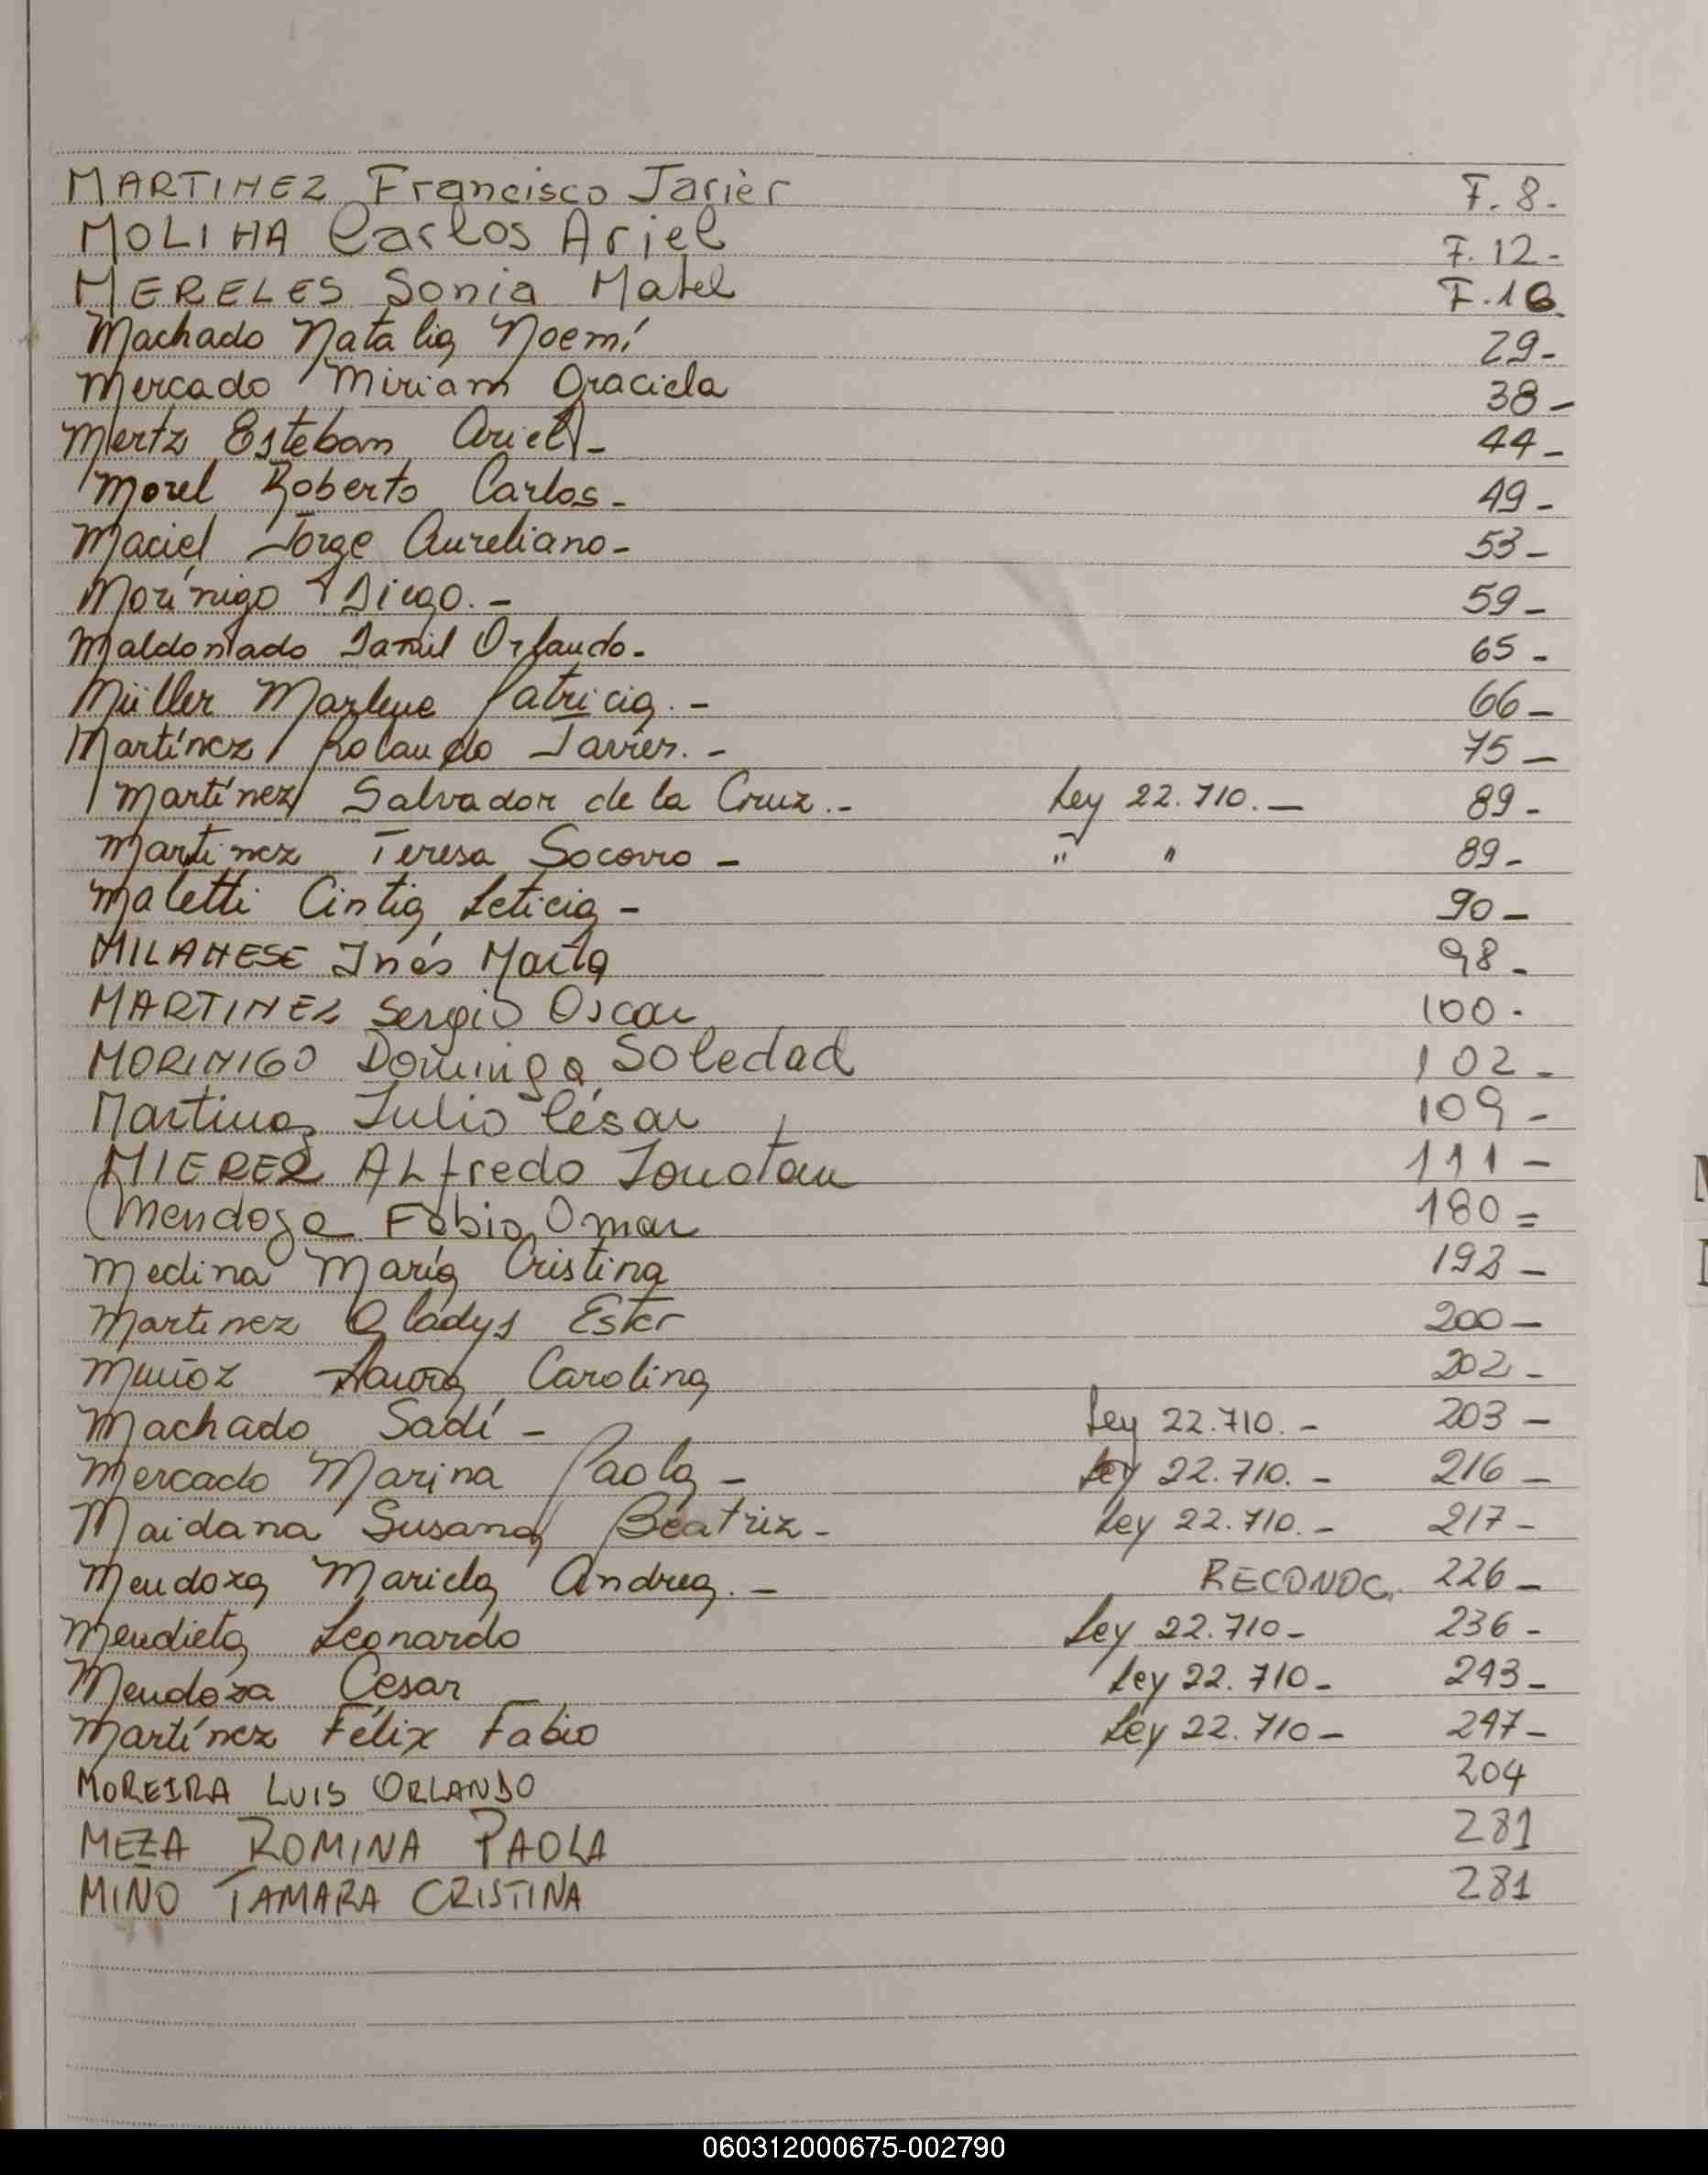 MARTINEZ Francisco Javier F. 8.-
MOLINA Carlos Ariel F. 12-
MERELES Sonia Mabel F. 16.
Machado Natalia Noemí 29-
Mercado Miriam Graciela 38-
Mertz Esteban Ariel- 44-
Morel Roberto Carlos- 49-
Maciel Jorge Aureliano- 53-
Morínigo Diego.- 59-
Maldonado Jamil Orlando- 65-
Müller Marlene Patricia.- 66-
Martínez Rolando Javier.- 75-
Martínez Salvador de la Cruz.- Ley 22.710.- 89-
Martinez Teresa Socorro- " " 89-
Maletti Cintia Leticia- 90-
MILANESE Inés Marta 98-
MARTINEZ Sergio Oscar 100-
MORINIGO Dominga Soledad 102-
Martinez Julio César 109-
MIEREZ ALfredo Jonatan 111-
Mendoza Fabio Omar 180=
Medina María Cristina 193-
Martinez Gladys Ester 200-
Muñoz Laura Carolina 202-
Machado Sadí- Ley 22.710.- 203-
Mercado Marina Paola- Ley 22.710.- 216-
Maidana Susana Beatriz- Ley 22.710.- 217-
Mendoza Mariela Andrea.- RECONOC. 226-
Mendieta Leonardo Ley 22.710- 236-
Mendoza César Ley 22.710- 243-
Martínez Félix Fabio Ley 22.710- 247-
MOREIRA LUIS ORLANDO 204
MEZA ROMINA PAOLA 281
MINO TAMARA CRISTINA 281
060312000675-002790